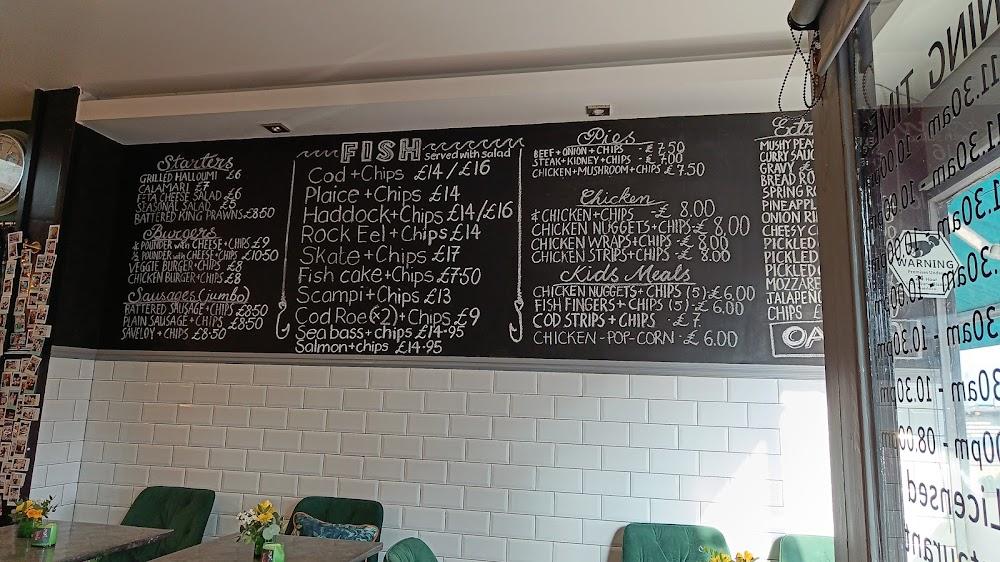 Starters
GRILLED HALLOUMI £6
CALAMARI £7
FETA CHEESE SALAD £6
SEASONAL SALAD £5
BATTERED KING PRAWNS £8·50
Burgers
¼ POUNDER with CHEESE+CHIPS £9
½ POUNDER with CHEESE+CHIPS £10·50
VEGGIE BURGER+CHIPS £8
CHICKEN BURGER+CHIPS £8
Sausages (jumbo)
BATTERED SAUSAGE+CHIPS £850
PLAIN SAUSAGE+CHIPS £850
SAVELOY+CHIPS £8·50
FISH served with salad
Cod+Chips £14/£16
Plaice+Chips £14
Haddock+Chips £14/£16
Rock Eel+Chips £14
Skate+Chips £17
Fish cake+Chips £7·50
Scampi+Chips £13
Cod Roe(x2)+Chips £9
Sea bass+chips £14·95
Salmon+chips £14·95
Pies
BEEF+ONION+CHIPS - £7.50
STEAK+KIDNEY+CHIPS - £7.00
CHICKEN+MUSHROOM+CHIPS £7.50
Chicken
CHICKEN+CHIPS - £ 8.00
CHICKEN NUGGETS+CHIPS-£ 8.00
CHICKEN WRAPS+CHIPS - £ 8.00
CHICKEN STRIPS+CHIPS - £ 8.00
Kids Meals
CHICKEN NUGGETS+CHIPS (5) £6.00
FISH FINGERS+CHIPS (5) £6.00
COD STRIPS+CHIPS · £7
CHICKEN-POP-CORN - £ 6.00
Extr
MUSHY PEA
CURRY SAUC
GRAVY £
BREAD RO
SPRING RO
PINEAPPL
ONION RI
CHEESY C
PICKLED
PICKLED
PICKLED
MOZZARE
JALAPENO
CHIPS £
OA
WARNING
NING TIM
11.30am
11.30am
- 10.30pm
- 08.00pm
Licensed
taurant